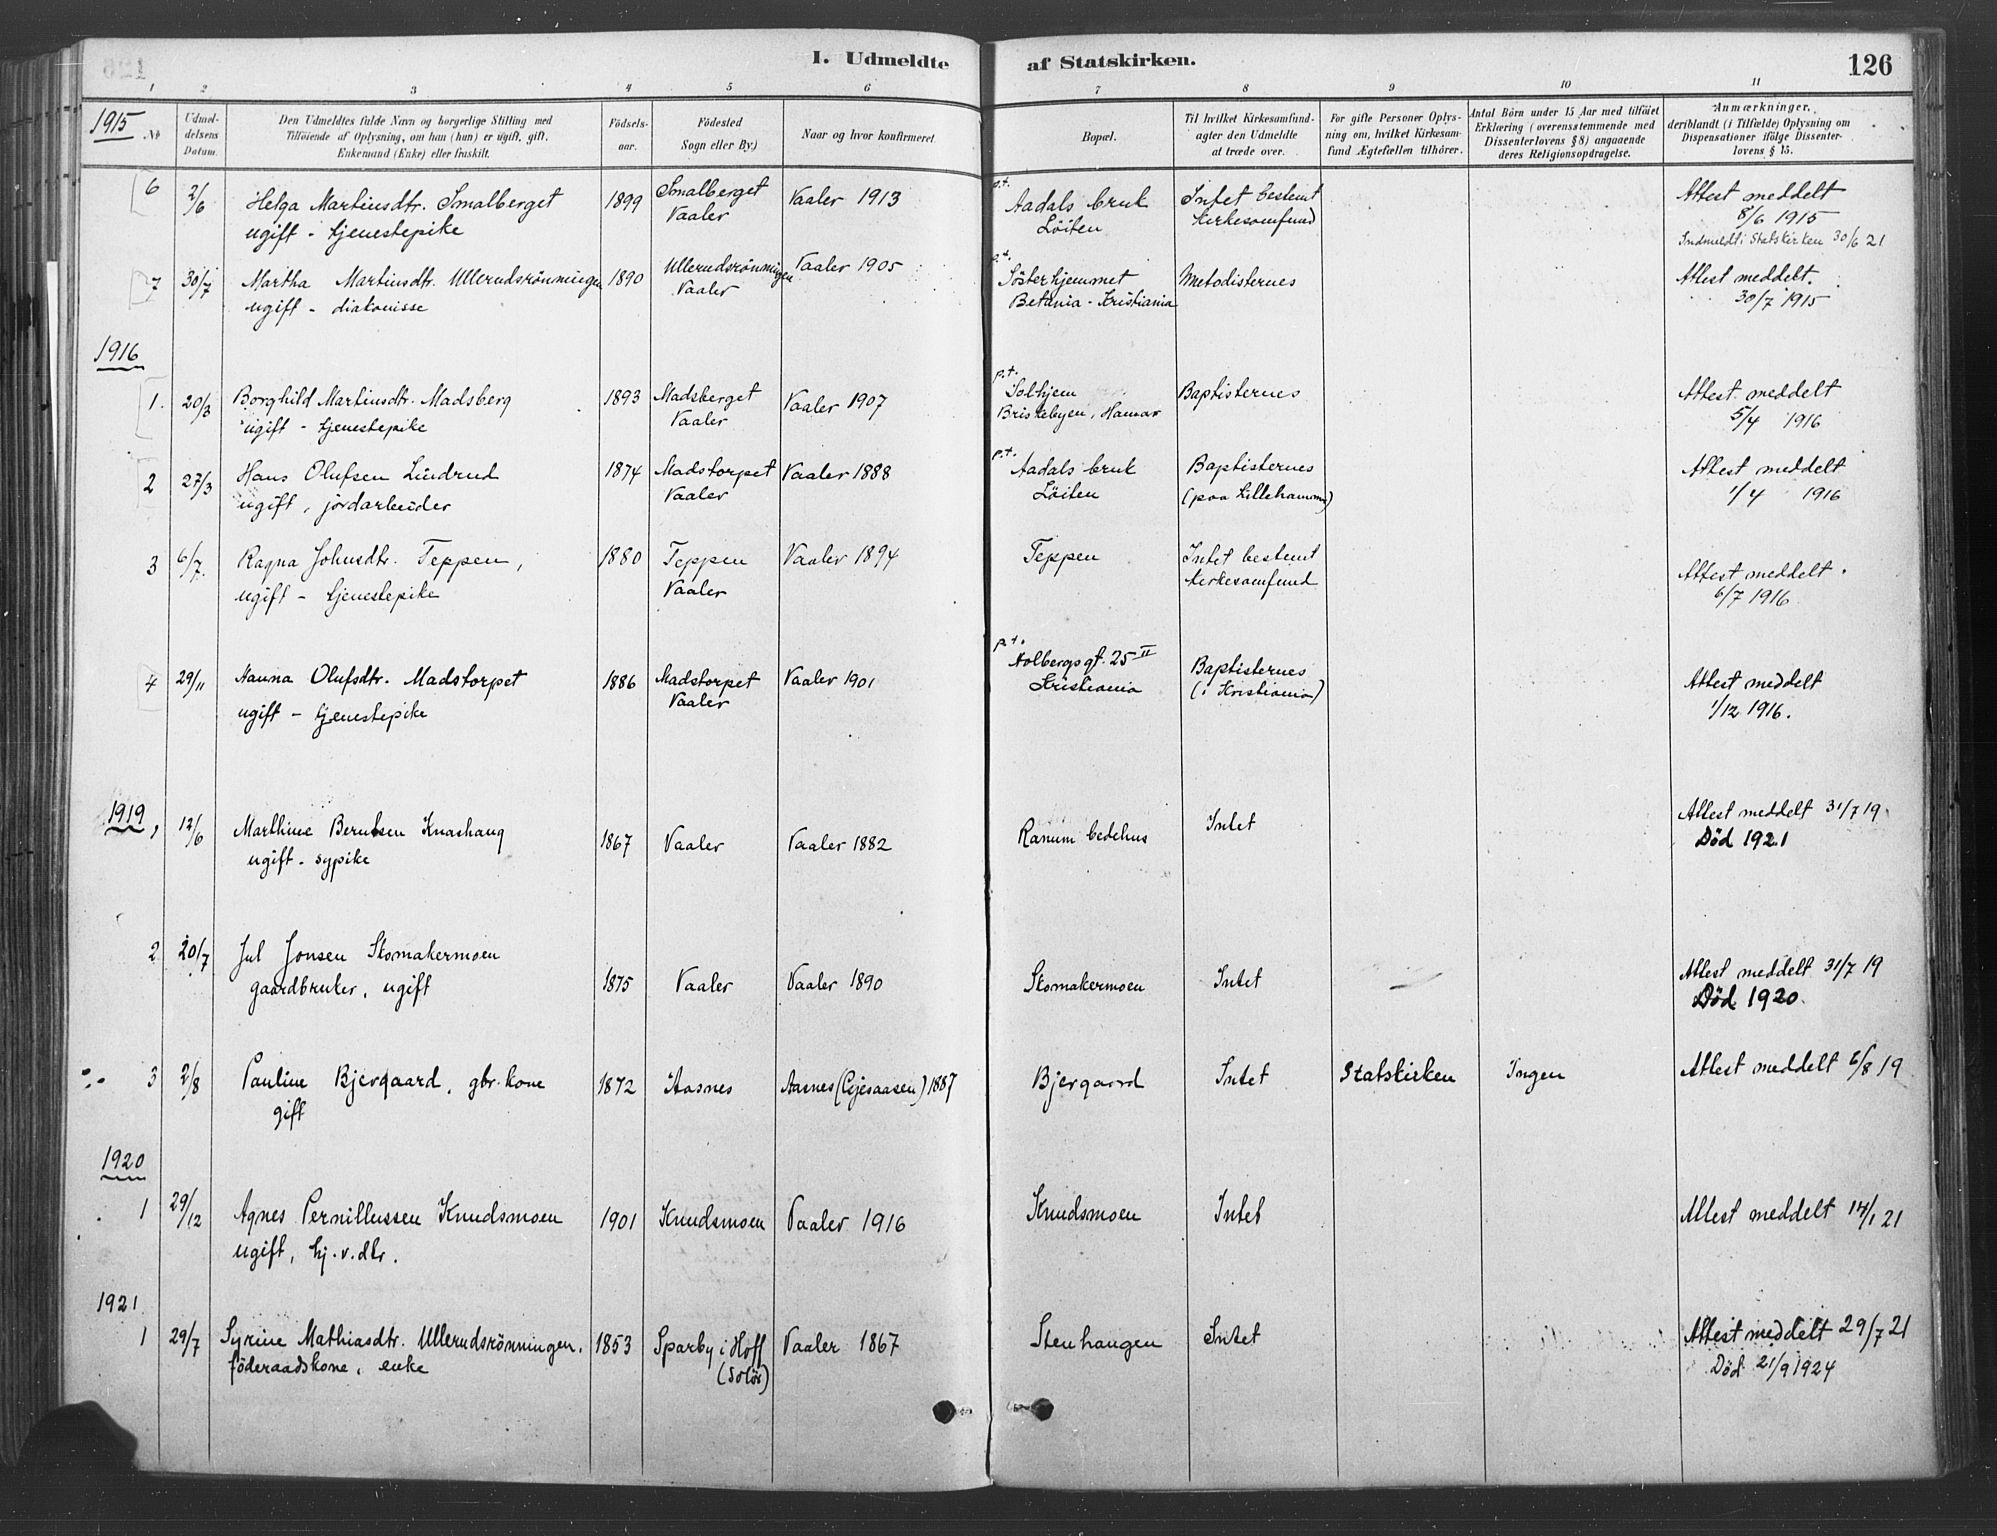 I. Udmeldte af Statskirken.
126
1 2 3 4 5 6 7 8 9 10 11
1915
№
Udmeldelsens Datum.
Den Udmeldtes fulde Navn og borgerlige Stilling med
Tilföiende af Oplysning, om han (hun) er ugift, gift,
Enkemand (Enke) eller fraskilt.
Födselsaar.
Födested
Sogn eller By.)
Naar og hvor konfirmeret.
Bopæl.
Til hvilket Kirkesamfund-
agter den Udmeldte
at træde over.
For gifte Personer Oplys-
ning om, hvilket Kirkesam-
fund Ægtefællen tilhörer.
Antal Börn under 15 Aar med tilföiet
Erklæring (overensstemmende med
Dissenterlovens § 8) angaaende
deres Religionsopdragelse.
Anmærkninger,
deriblandt (i Tilfælde) Oplysning om
Dispensationer ifölge Dissenter-
lovens § 15.
6 2/6 Helga Martinsdtr. Smalberget 1899 Smalberget Vaaler 1913 p.t. Aadals bruk Intet bestemt Attest meddelt
ugift - tjenestepike Vaaler Löiten kirkesamfund 8/6 1915
Indmeldt i Statskirken 30/6 21
7 30/7 Martha Martinsdtr. Ullerudsrönningen 1890 Ullerudsrönningen Vaaler 1905 p.t. Sösterhjemmet Metodisternes Attest meddelt.
ugift - diakonisse Vaaler Betania - Kristiania 30/7 1915
1916
1. 20/3 Borghild Martinsdtr. Madsberg 1893 Madsberget Vaaler 1907 p.t. Solhjem Baptisternes Attest meddelt
ugift - tjenestepike Vaaler Briskebyen, Hamar 5/4 1916
2 27/3 Hans Olufsen Lindrud 1874 Madstorpet Vaaler 1888 p.t. Aadals bruk Baptisternes Attest meddelt
ugift, jordarbeider Vaaler Löiten (paa Lillehammer) 1/4 1916
3 6/7. Ragna Johnsdtr. Teppen, 1880 Teppen Vaaler 1894 Teppen Intet bestemt Attest meddelt.
ugift - tjenestepike Vaaler kirkesamfund 6/7 1916
4 29/11 Hanna Olufsdtr. Madstorpet 1886 Madstorpet Vaaler 1901 p.t. Holbergsgt. 25 II Baptisternes Attest meddelt
ugift - tjenestepike Vaaler Kristiania (i Kristiania) 1/12 1916.
1919
1 12/6 Marthine Berntsen Knashaug 1867 Vaaler Vaaler 1882 Ranum bedehus Intet Attest meddelt 31/7 19
ugift - sypike Död 1921
2 20/7 Jul Jonsen Skomakermoen Attest meddelt 31/7 19
gaardbruker, ugift 1875 Vaaler Vaaler 1890 Skomakermoen Intet Död 1920.
3 2/8 Pauline Bjergaard, gbr. kone 1872 Aasnes Aasnes (Gjesaasen) 1887 Bjergaard Intet Statskirken Ingen Attest meddelt 6/8 19
gift
1920
1 29/12 Agnes Pernillussen Knudsmoen 1901 Knudsmoen Vaaler 1916 Knudsmoen Intet Attest meddelt 14/1 21
ugift, hj. v. dtr.
1921
1 29/7 Syrine Mathiasdtr. Ullerudsrönningen. 1853 Sparby i Hoff Vaaler 1867 Stenhaugen Intet Attest meddelt 29/7 21
föderaadskone, enke (Solör) Död 21/9 1924